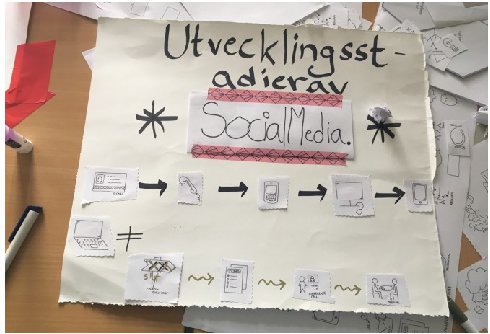 Utvecklingsst-
adierav
Social Media.